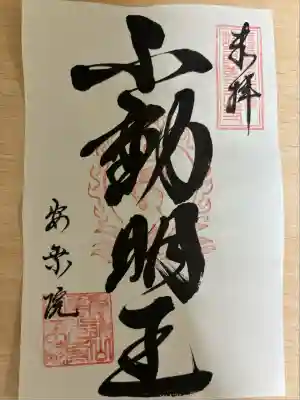 奉拝
不動明王
安楽院